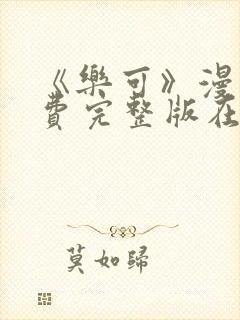 《樂可》漫
費完整版在
莫如歸